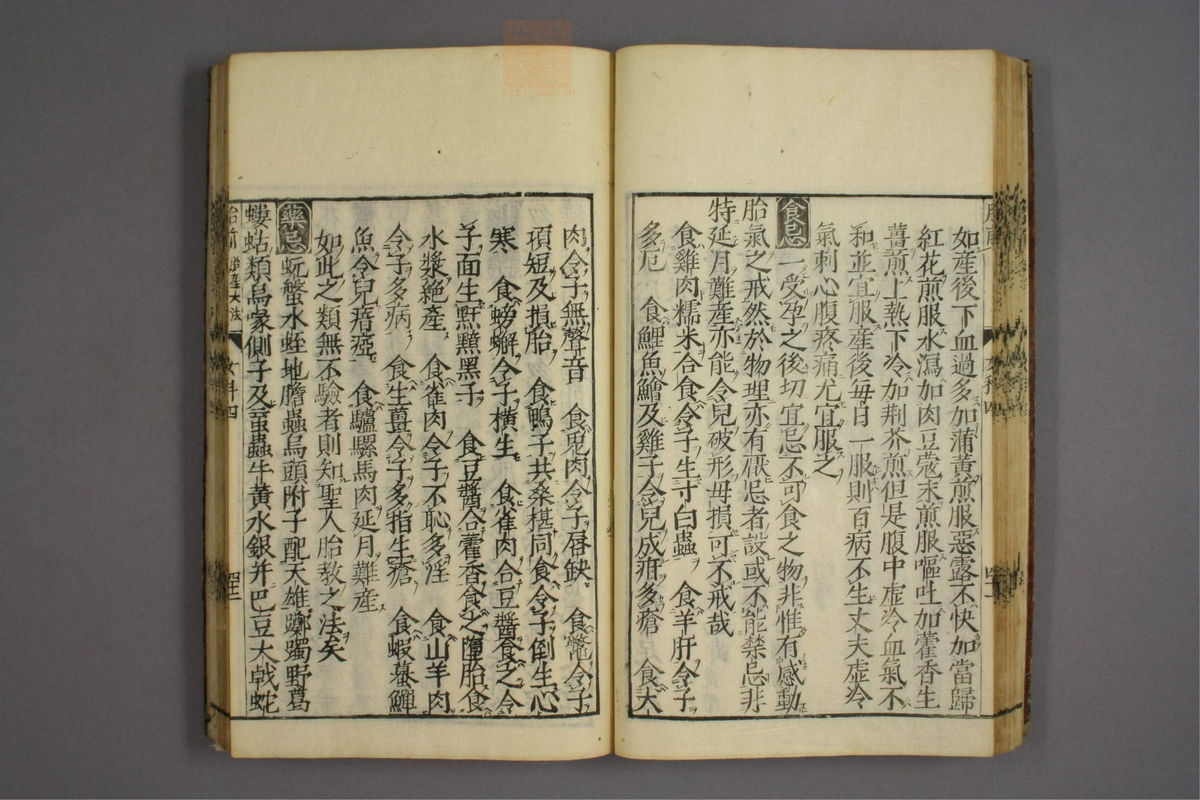 如産後下血過多加蒲黃煎服惡露不快加當歸
紅花煎服水瀉加肉豆蔲末煎服嘔吐加藿香生
薑煎上熱下冷加荆芥煎但是腹中虛冷血氣不
和並宜服産後毎日一服則百病不生丈夫虛冷
氣刺心腹疼痛尤宜服之
食忌 一受孕之後切宜忌不可食之物非惟有感動
胎氣之戒然於物理亦有厭忌者設或不能禁忌非
特延月難産亦能令兒破形毋損可不戒哉
食雞肉糯米合食令子生寸白蟲 食羊肝令子
多厄 食鯉魚鱠及雞子令兒成疳多瘡 食犬
肉令子無聲音 食兎肉令子唇缺 食鼈令子
項短及損胎 食鴨子共桑椹同食令子倒生心
寒 食螃蠏令子橫生 食雀肉合豆醬食之令
子面生䵟黯黑子 食豆醬合藿香食之墮胎食
水漿絕產 食雀肉令子不恥多淫 食山羊肉
令子多病 食生薑令子多指生瘡 食蝦蟇鱓
魚令兒瘖瘂 食驢騾馬肉延月難産
如此之類無不驗者則知聖人胎教之法矣
藥忌 蚖蟹水蛭地膽蟲烏頭附子配天雄躑躅野葛
螻蛄類烏喙側子及䖟蟲牛黃水銀并巴豆大戟蛇
胎前
女科四